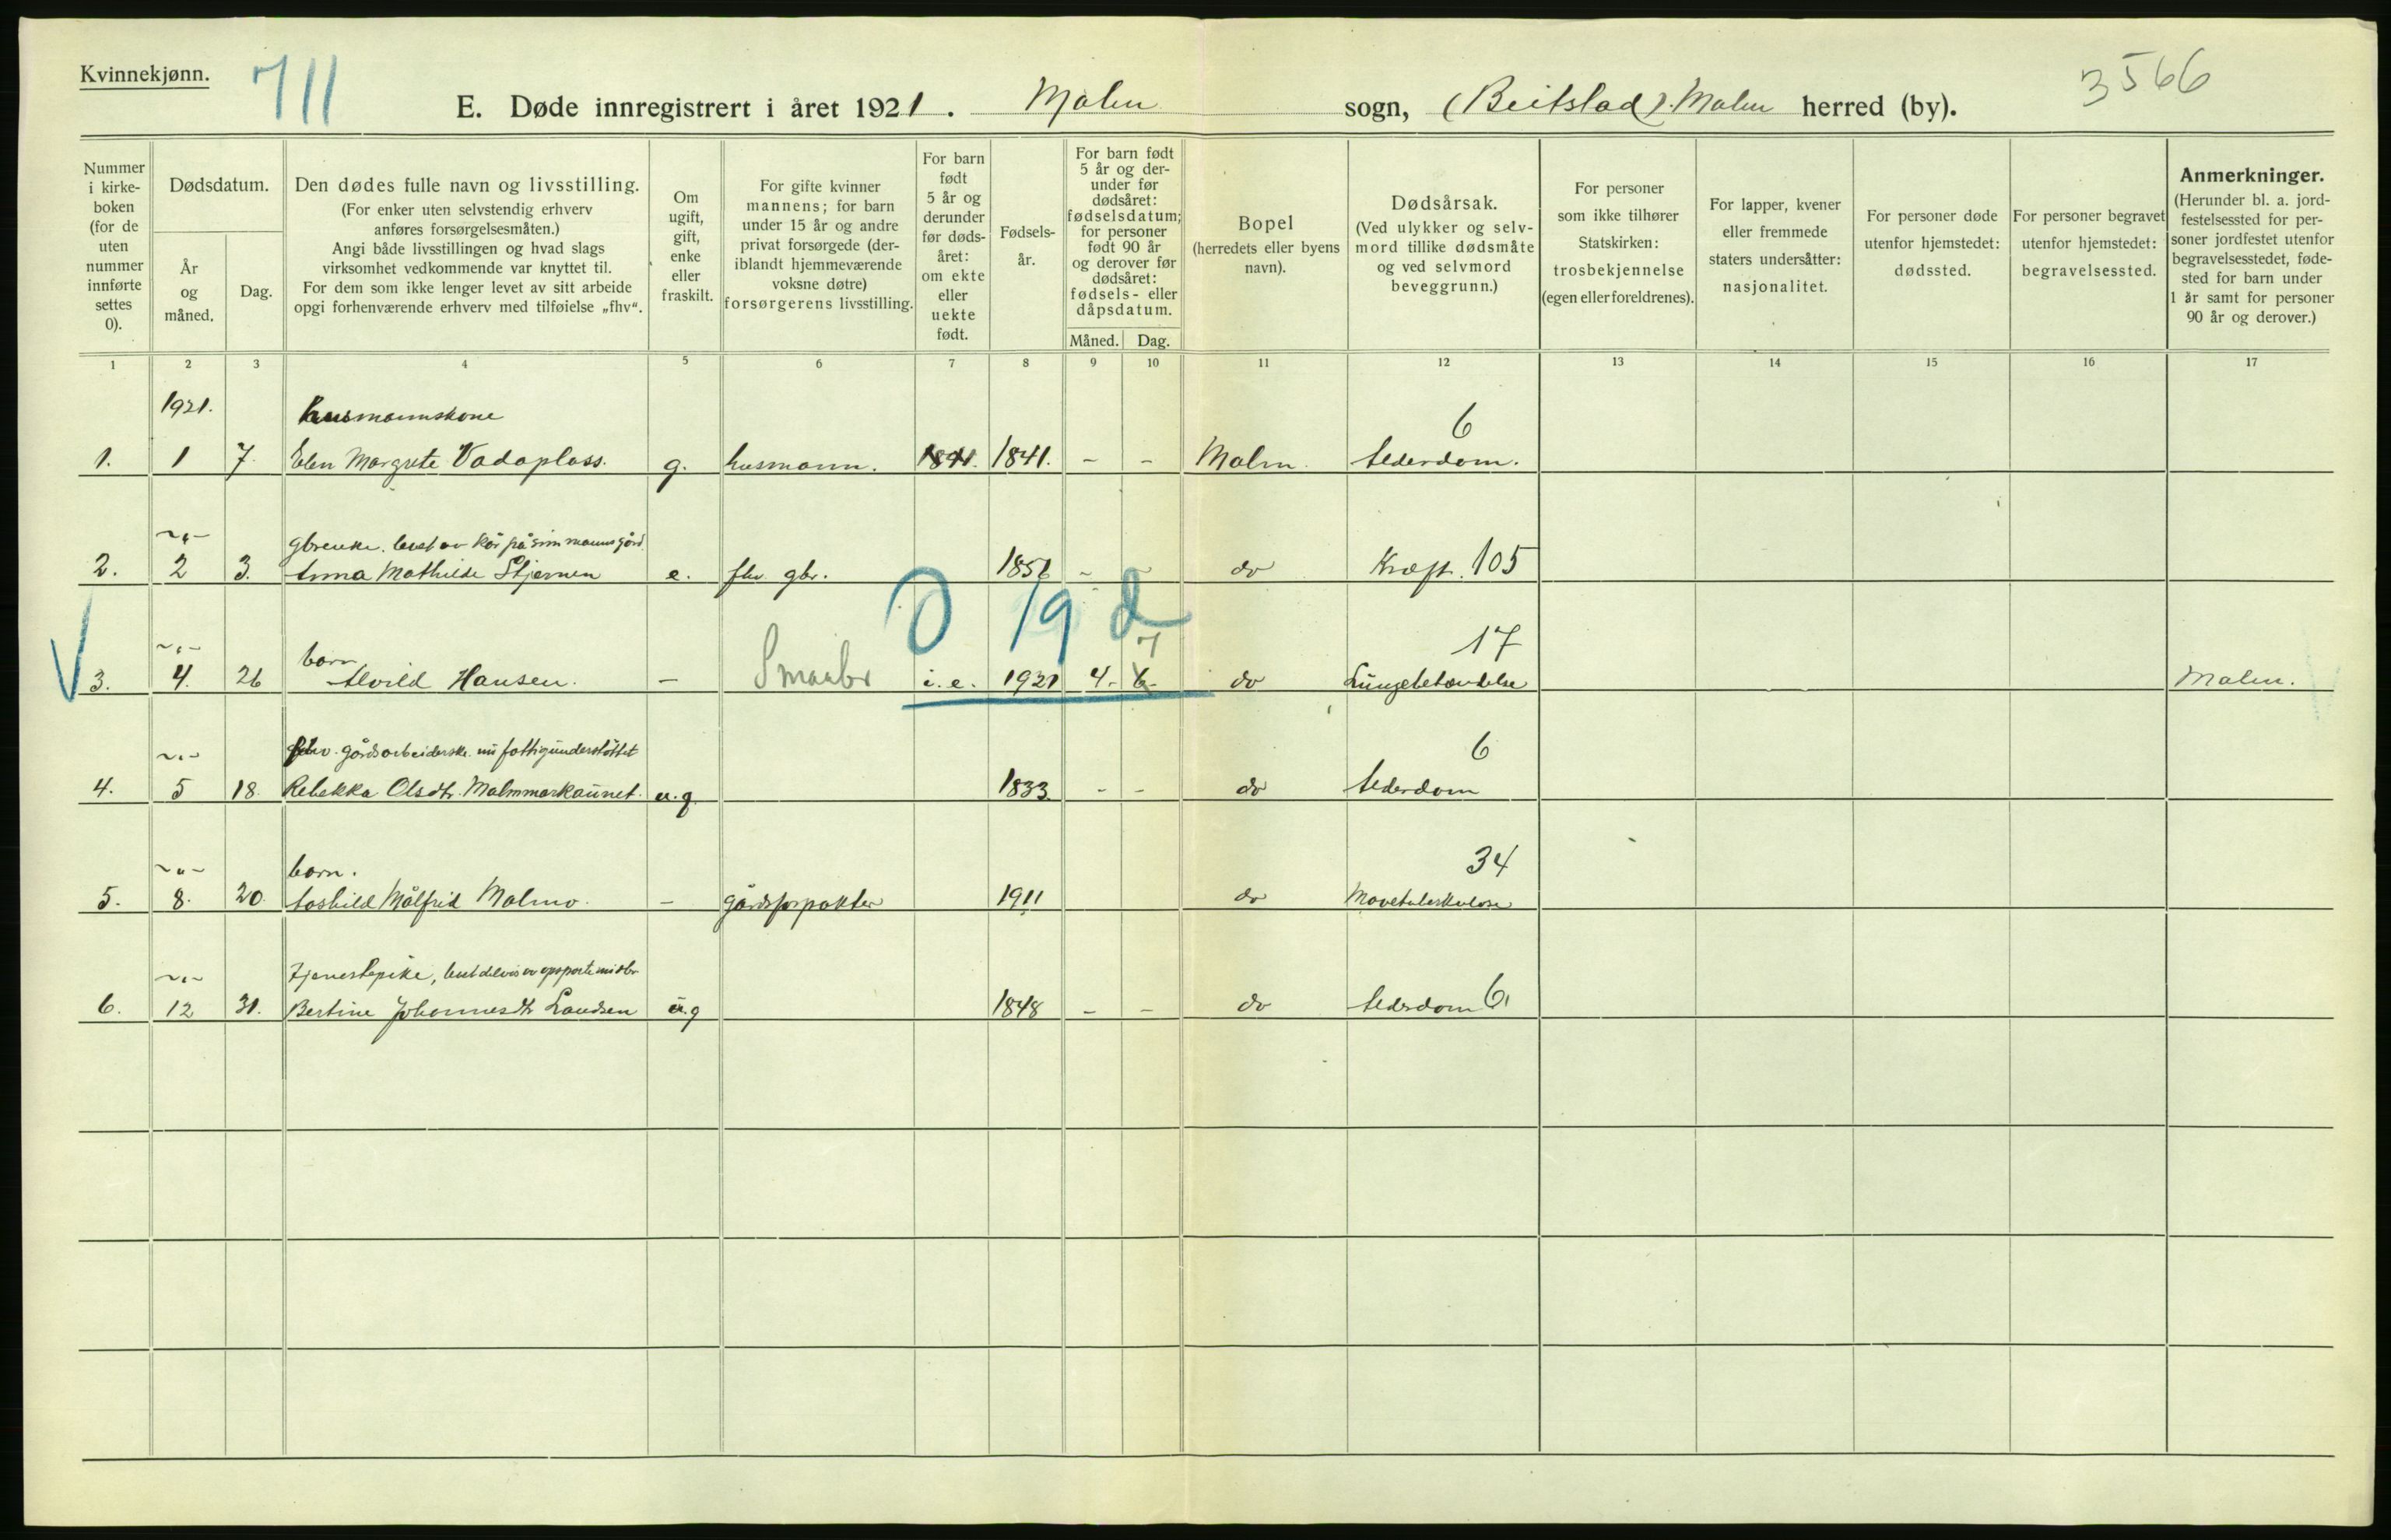 Kvinnekjønn.
711
3566
E. Døde innregistrert i året 1921. Malm sogn, (Beitstad). Malm herred (by).
Nummer i kirkeboken (for de uten nummer innførte settes 0).
Dødsdatum.
År og måned.
Dag.
Den dødes fulle navn og livsstilling.
(For enker uten selvstendig erhverv anføres forsørgelsesmåten.)
Angi både livsstillingen og hvad slags virksomhet vedkommende var knyttet til.
For dem som ikke lenger levet av sitt arbeide opgi forhenværende erhverv med tilføielse „fhv“.
Om ugift, gift, enke eller fraskilt.
For gifte kvinner mannens; for barn under 15 år og andre privat forsørgede (deriblandt hjemmeværende voksne døtre) forsørgerens livsstilling.
For barn født 5 år og derunder før dødsåret: om ekte eller uekte født.
Fødselsår.
For barn født 5 år og derunder før dødsåret: fødselsdatum; for personer født 90 år og derover før dødsåret: fødsels- eller dåpsdatum.
Måned. Dag.
Bopel (herredets eller byens navn).
Dødsårsak.
(Ved ulykker og selvmord tillike dødsmåte og ved selvmord beveggrunn.)
For personer som ikke tilhører Statskirken: trosbekjennelse (egen eller foreldrenes).
For lapper, kvener eller fremmede staters undersåtter: nasjonalitet.
For personer døde utenfor hjemstedet: dødssted.
For personer begravet utenfor hjemstedet: begravelsessted.
Anmerkninger.
(Herunder bl. a. jordfestelsessted for personer jordfestet utenfor begravelsesstedet, fødested for barn under 1 år samt for personer 90 år og derover.)
1 2 3 4 5 6 7 8 9 10 11 12 13 14 15 16 17
1921. husmannskone 6
1. 1 7. Elen Margrete Vadaplass. g. husmann. 1841. 1841. - - Malm. Alderdom.
~"~ gbrenke. levet av kår på sin manns gård.
2. 2 3. Anna Mathilde Stjernen e. fhv. gbr. 1856 - - do Kræft. 105
0 19 d
~"~ barn 7 17
V 3. 4. 26 Alvild Hansen. - Smaabr i.e. 1921 4. 6 do Lungebetændelse Malm.
~"~ fhv. gårdsarbeiderske. nu fattigunderstöttet 6
4. 5 18. Rebekka Olsdtr. Malmmarkaunet. u.g. 1833. - - do Alderdom
~"~ barn. 34
5. 8. 20. Aashild Målfrid Malmo. - gårdsforpakter 1911 do Mavetuberkulose
~"~ Tjenestepike, levet delvis av opsparte midler
6. 12 31. Bertine Johannesdtr Landsen u.g 1848 - - do Alderdom 6